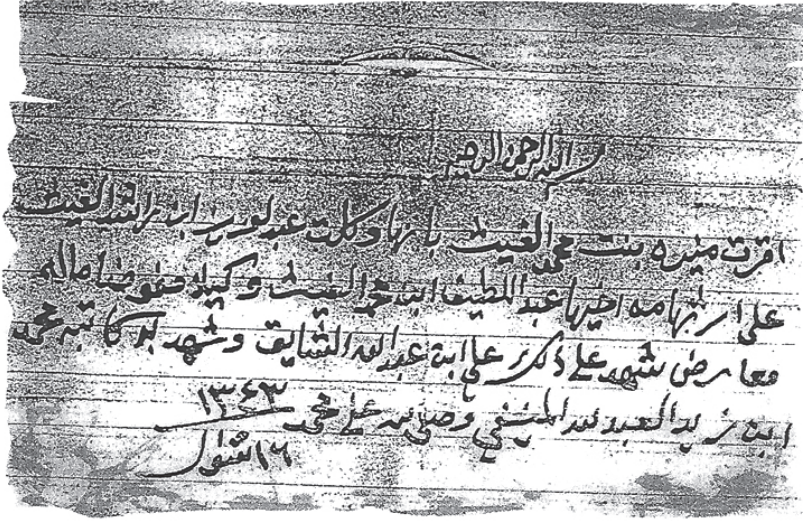 بسم الله الرحمن الرحيم
اقرت منيره بنت محمد الغيث بانها وكلت عبدلعزيز ابن راشد الغيث
على ارثها من اخيها عبد اللطيف ابن محمد الغيث وكيلا مفوضا ماله
معارض شهد على ذلك علي ابن عبد الله الشايق وشهد به كاتبه محمد
ابن زيد العبد لله المنيفي وصلى الله على محمد ١٣٤٣
١٦ شوال